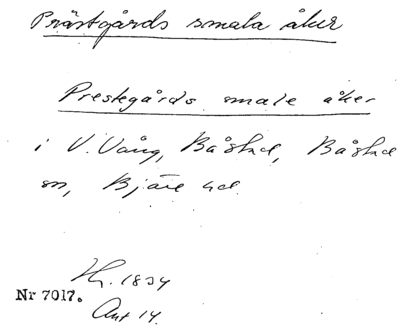 Prästgårds smala åker
Prestegårds smale åker
i V. Vång, Båstad, Båstad
sn, Bjäre hd.
H. 1834
Nr 7017.
Ant 14.